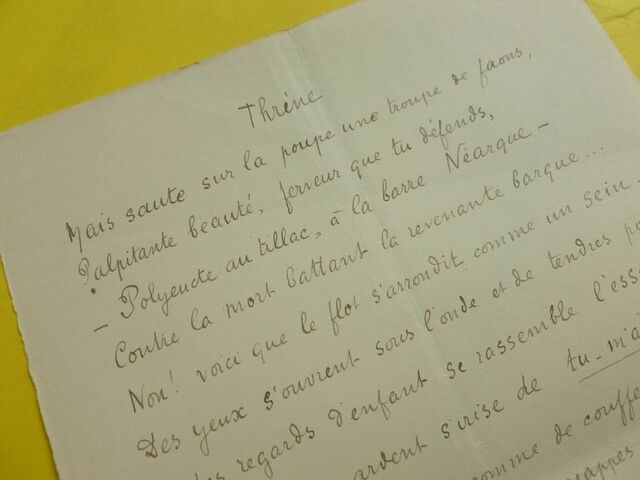 Thrène
Mais saute sur la poupe une troupe de faons,
Palpitante beauté, ferveur que tu défends,
- Polyeucte au tillac, à la barre Néarque -
Contre la mort battant la revenante barque...
Non! voici que le flot s'arrondit comme un sein.
Des yeux s'ouvrent sous l'onde et de tendres
regards d'enfant se rassemble
ardent s'irise de tu-m'ai
comme de